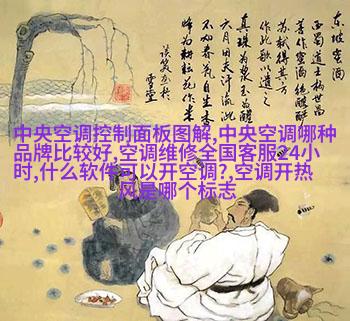 东坡空酒
西蜀道士杨世昌
善作蜜酒绝醇酽
余既得其方
作此歌以遗之
真珠为浆玉为醴
六月田夫汗流泚
不如春瓮自生香
蜂为耕耘花作米
中央空调控制面板图解,中央空调哪种
品牌比较好,空调维修全国客服24小
时,什么软件可以开空调?,空调开热
风是哪个标志